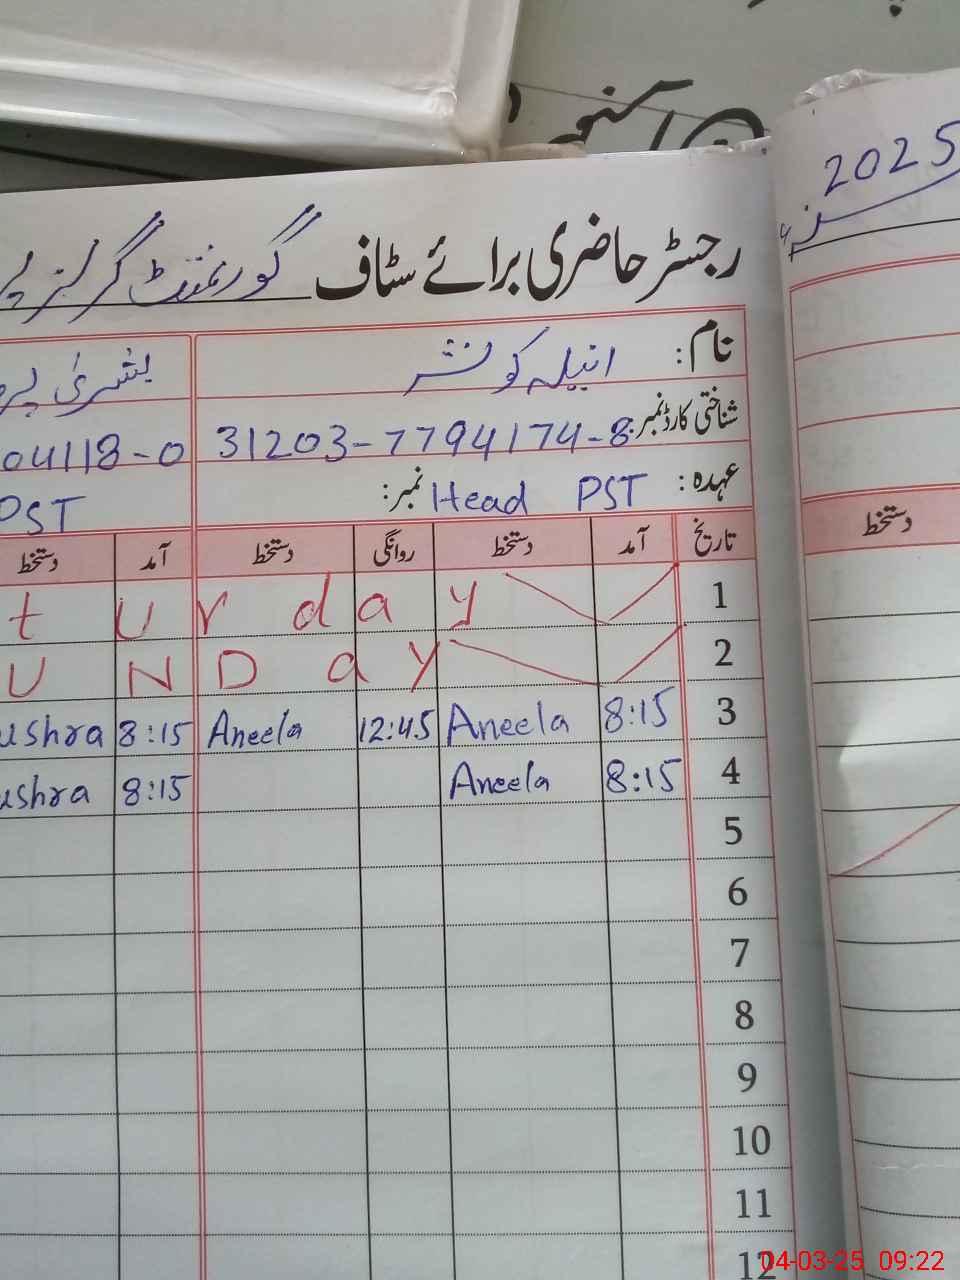 2025
رجسٹر حاضری برائے سٹاف گورنمنٹ گرلز
نام: انیلہ کوثر بشریٰ
شناختی کارڈ نمبر: 31203-7794174-8 04118-0
عہدہ: Head PST نمبر: PST
تاریخ آمد دستخط روانگی دستخط آمد دستخط
دستخط
1 t u r d a y
2 U N D a y
3 8:15 Aneela 12:45 Aneela 8:15 ushra
4 8:15 Aneela 8:15 ushra
5
6
7
8
9
10
11
12
04-03-25 09:22